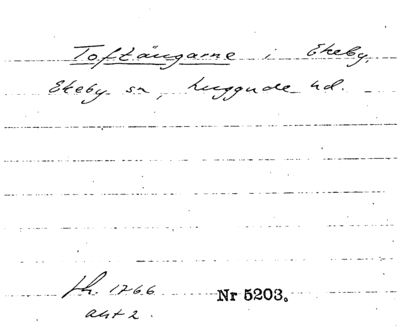 Toftängarne i Ekeby,
Ekeby sn, Luggude hd.
1766 Nr 5203.
akt 2.